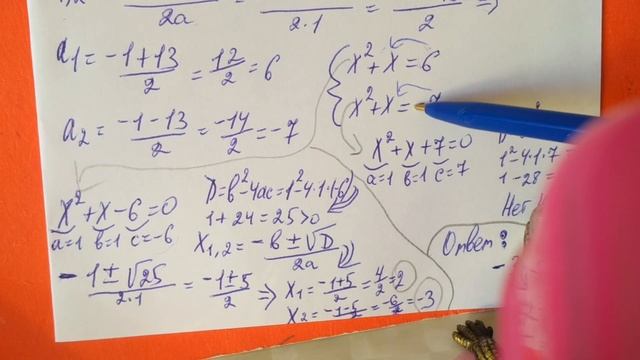 2a 2·1 = 2 ⇒
a₁ = (-1+13)/2 = 12/2 = 6
a₂ = (-1-13)/2 = -14/2 = -7
x²+x=6
x²+x=
x²+x+7=0
a=1 b=1 c=7
1²-4·1·7
1-28=
Нет
x²+x-6=0
a=1 b=1 c=-6
D=b²-4ac=1²-4·1·(-6)
1+24=25>0
x₁,₂ = (-b±√D)/2a
- (1±√25)/(2·1) = (-1±5)/2 ⇒ x₁ = (-1+5)/2 = 4/2 = 2
x₂ = (-1-5)/2 = -6/2 = -3
Ответ: